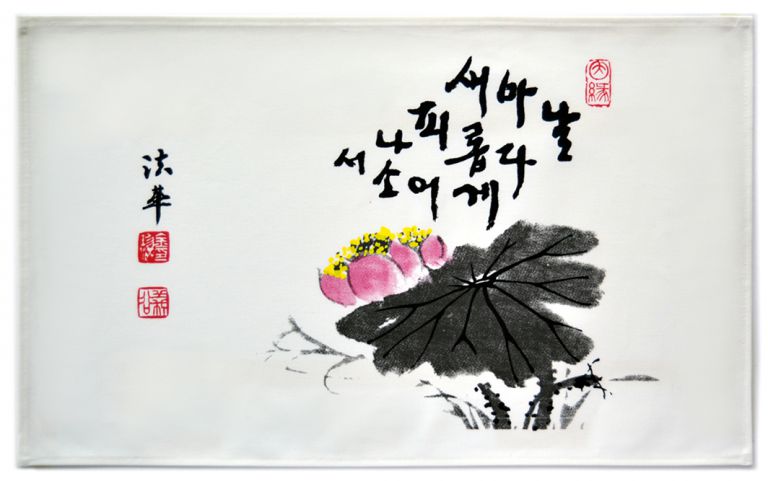 날
마다
새롭게
피어
나소
서
法華